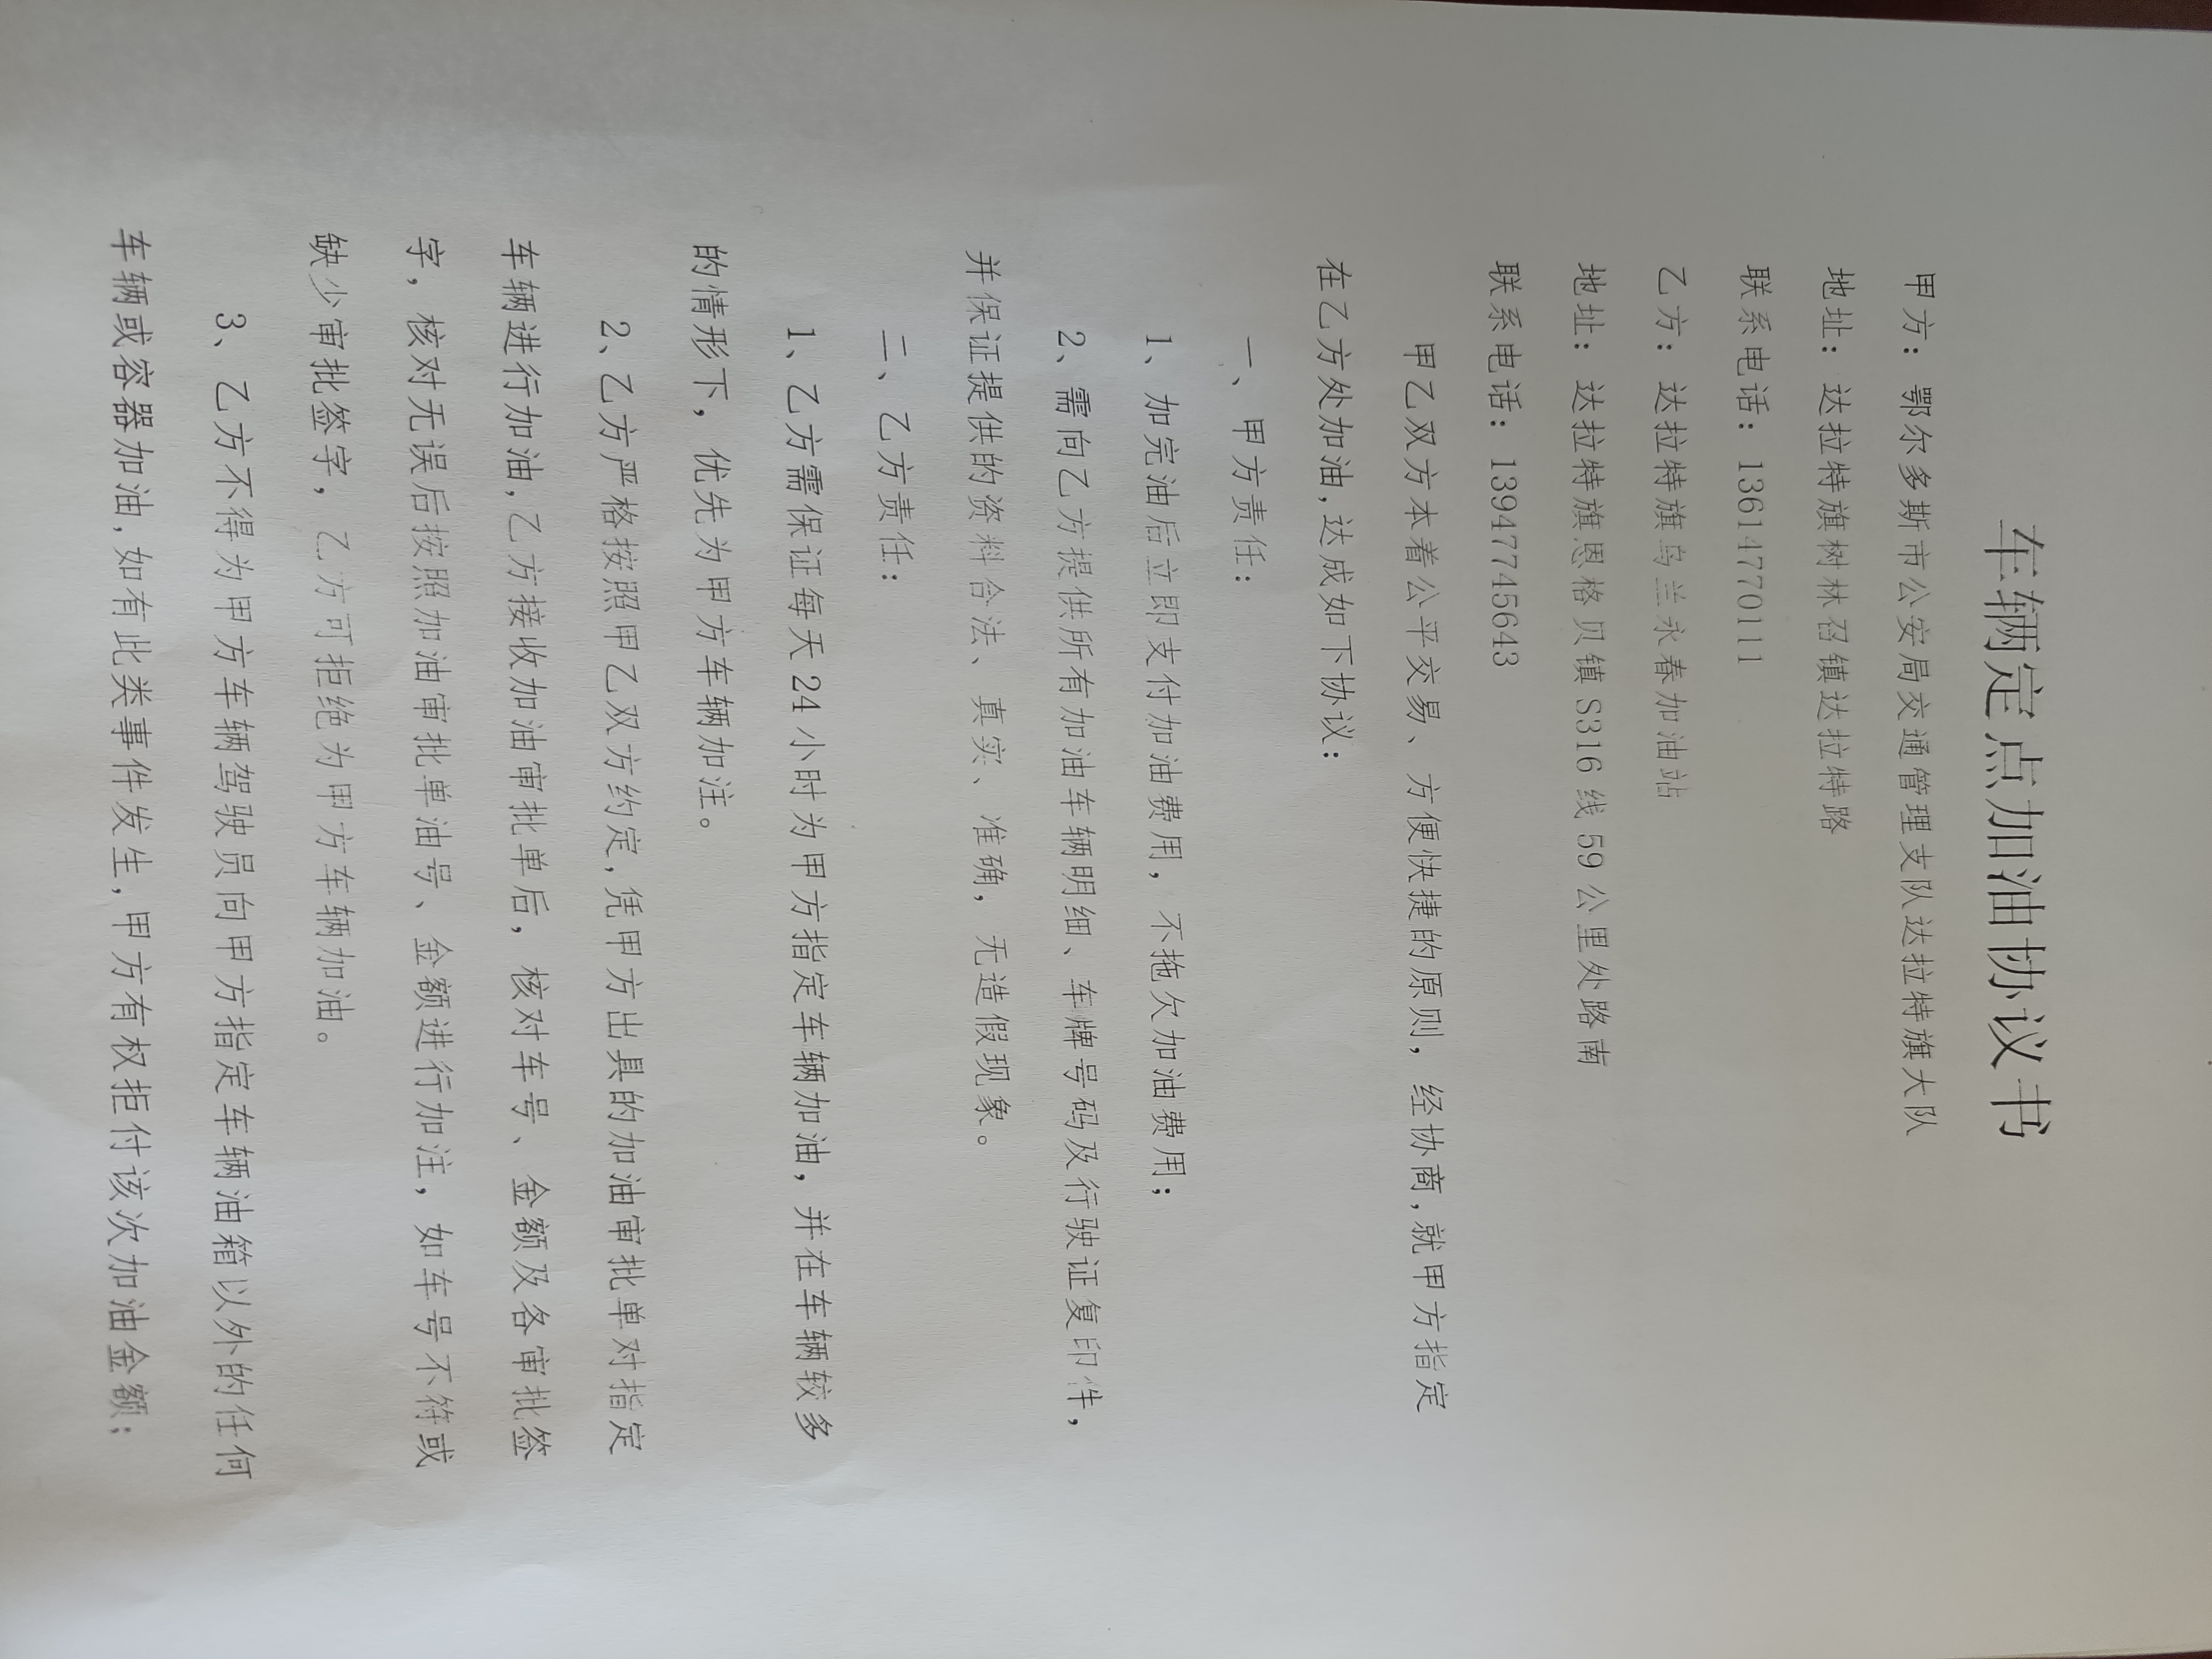 车辆定点加油协议书
甲方：鄂尔多斯市公安局交通管理支队达拉特旗大队
地址：达拉特旗树林召镇达拉特路
联系电话：13614770111
乙方：达拉特旗乌兰永春加油站
地址：达拉特旗恩格贝镇S316线59公里处路南
联系电话：13947745643
甲乙双方本着公平交易、方便快捷的原则，经协商,就甲方指定
在乙方处加油,达成如下协议：
一、甲方责任：
1、加完油后立即支付加油费用，不拖欠加油费用；
2、需向乙方提供所有加油车辆明细、车牌号码及行驶证复印件，
并保证提供的资料合法、真实、准确，无造假现象。
二、乙方责任：
1、乙方需保证每天24小时为甲方指定车辆加油，并在车辆较多
的情形下，优先为甲方车辆加注。
2、乙方严格按照甲乙双方约定,凭甲方出具的加油审批单对指定
车辆进行加油,乙方接收加油审批单后，核对车号、金额及各审批签
字，核对无误后按照加油审批单油号、金额进行加注，如车号不符或
缺少审批签字，乙方可拒绝为甲方车辆加油。
3、乙方不得为甲方车辆驾驶员向甲方指定车辆油箱以外的任何
车辆或容器加油,如有此类事件发生,甲方有权拒付该次加油金额；